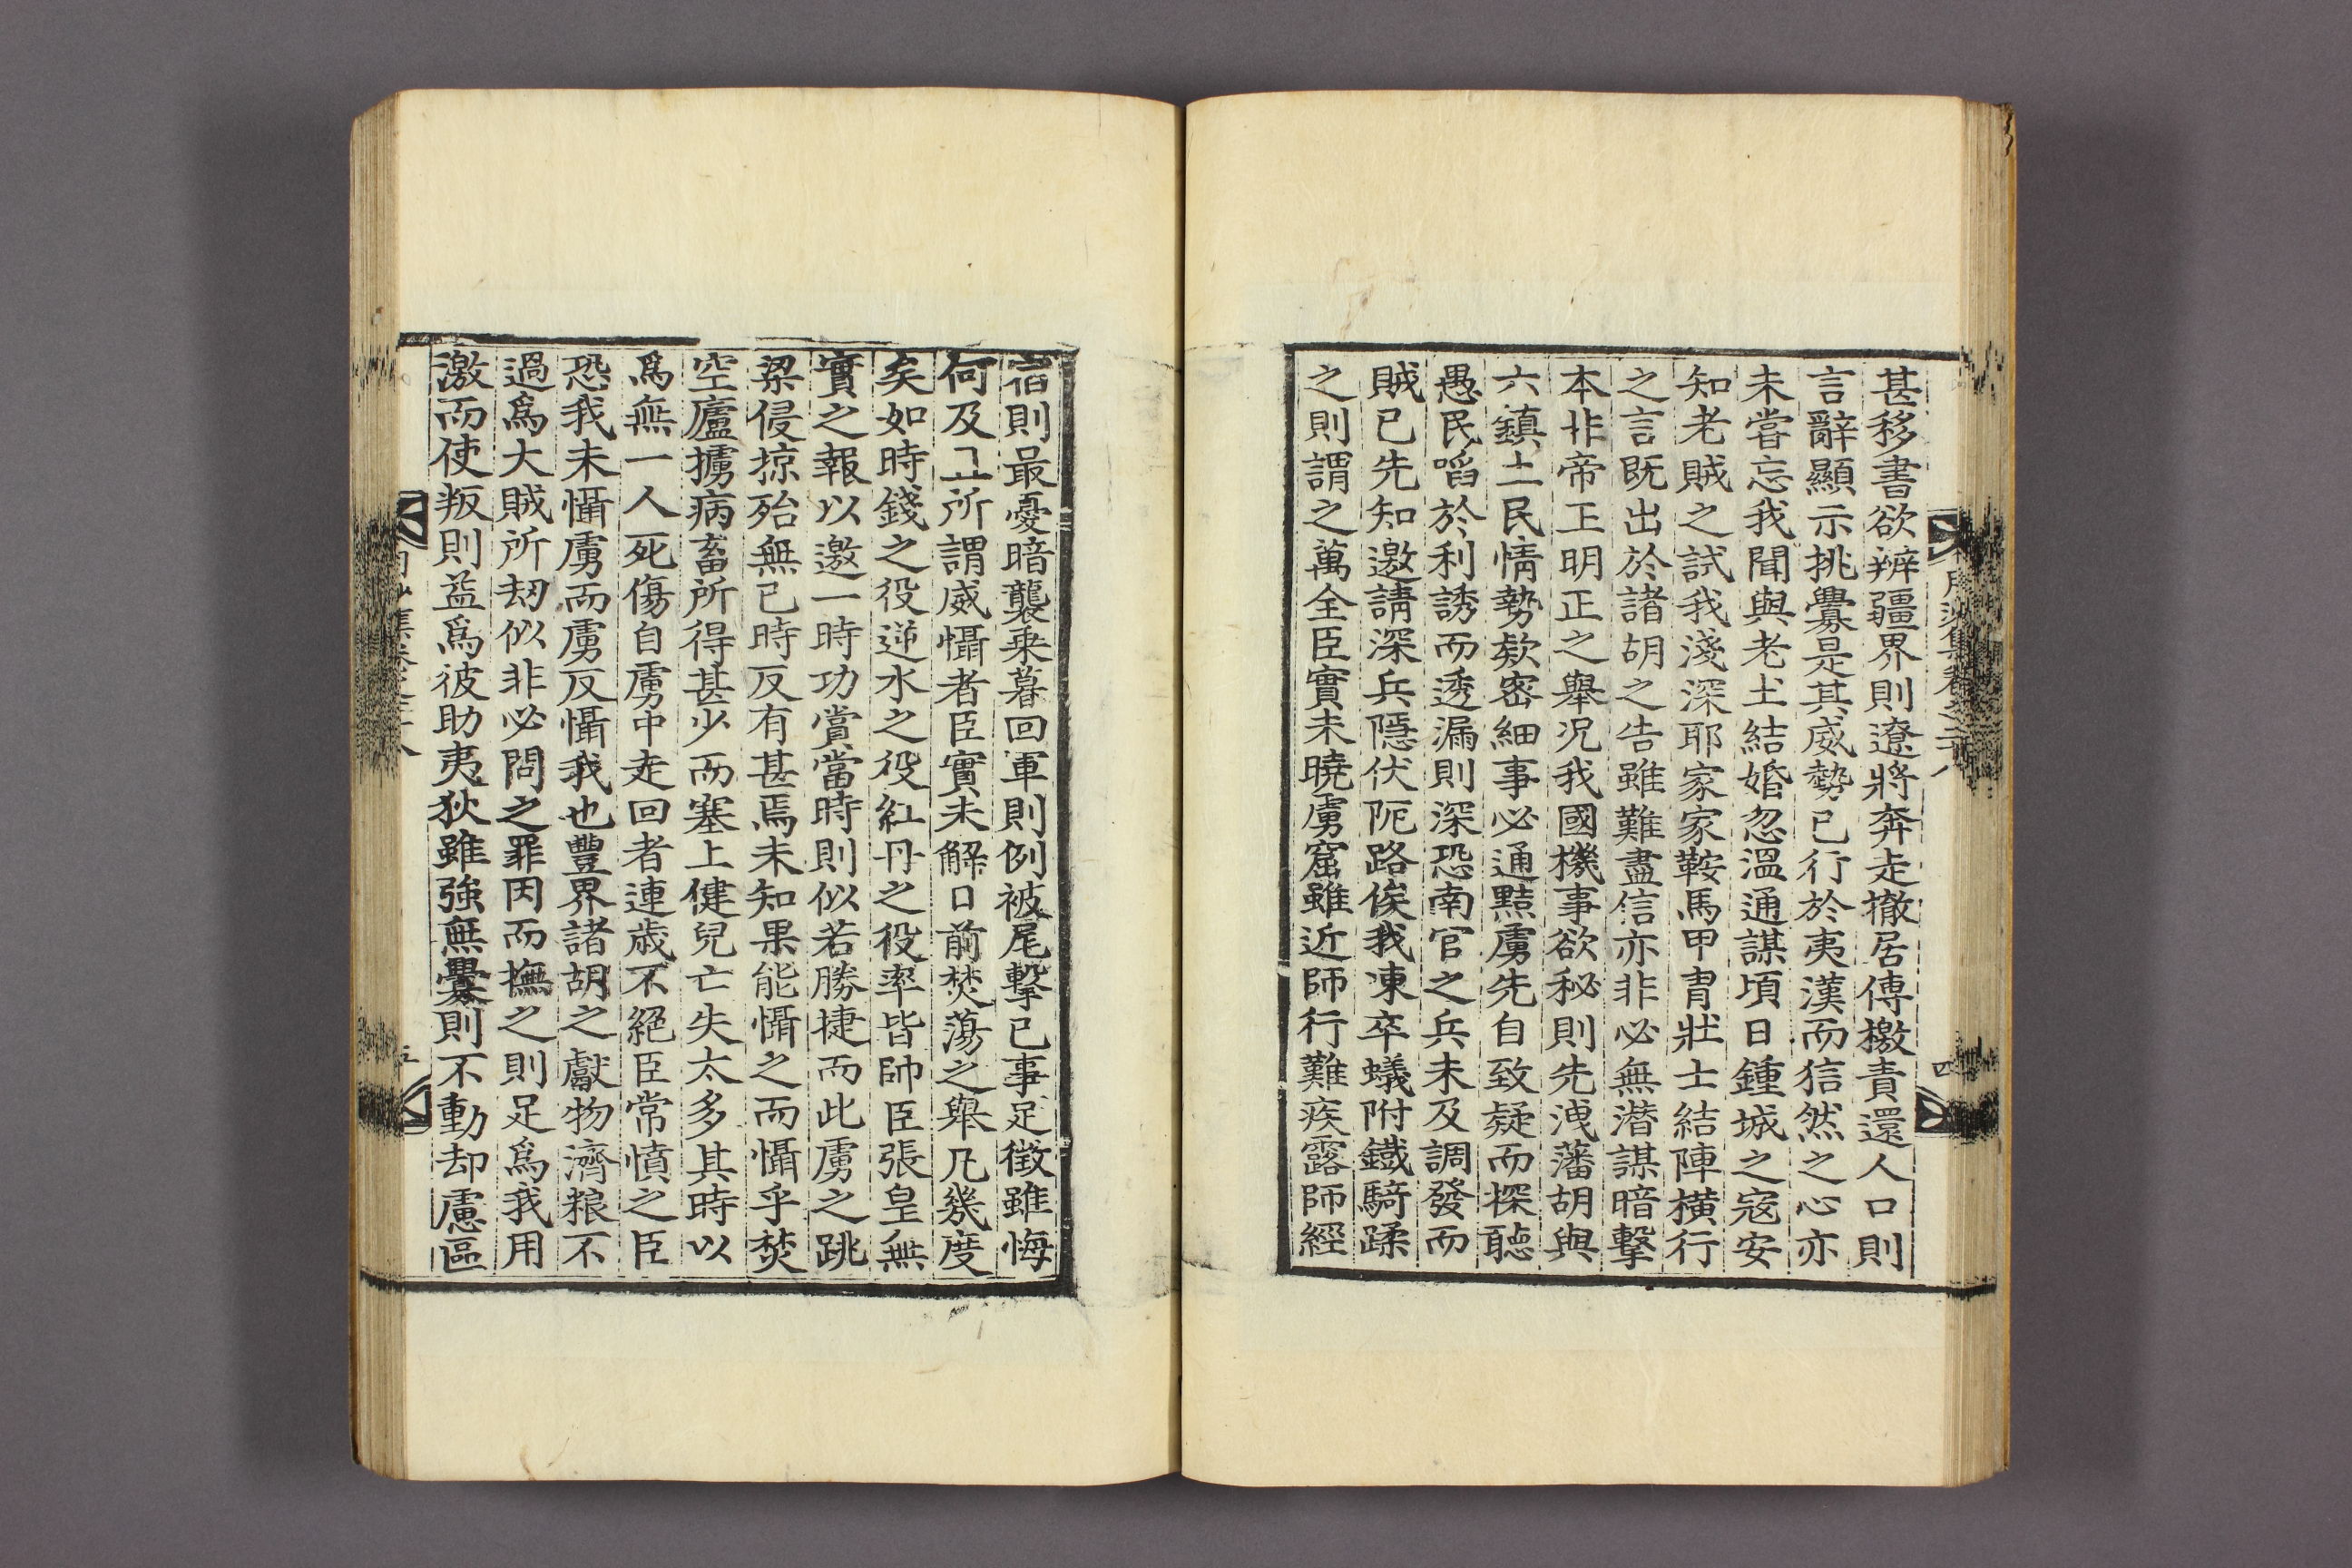 甚移書欲辨疆界則遼將奔走撤居傳檄責還人口則
言辭顯示挑釁是其威勢已行於夷漢而狺然之心亦
未嘗忘我聞與老土結婚忽溫通謀頃日鍾城之寇安
知老賊之試我淺深耶家家鞍馬甲冑壯士結陣橫行
之言旣出於諸胡之告雖難盡信亦非必無潜謀暗擊
本非帝王明正之舉況我國機事欲秘則先洩藩胡與
六鎮土民情勢欵密細事必通黠虜先自致疑而探聽
愚民啗於利誘而透漏則深恐南官之兵未及調發而
賊已先知邀請深兵隱伏阨路俟我凍卒蟻附鐵騎蹂
之則謂之萬全臣實未曉虜窟雖近師行難疾露師經
月沙集卷之二十八
四
宿則最憂暗襲乘暮回軍則例被尾擊已事足徵雖悔
何及且所謂威懾者臣實未解日前焚蕩之舉凡幾度
矣如時錢之役逆水之役紅丹之役率皆帥臣張皇無
實之報以邀一時功賞當時則似若勝捷而此虜之跳
梁侵掠殆無已時反有甚焉未知果能懾之而懾乎焚
空廬擄病畜所得甚少而塞上健兒亡失太多其時以
爲無一人死傷自虜中走回者連歲不絕臣常憤之臣
恐我未懾虜而虜反懾我也豐界諸胡之獻物濟粮不
過爲大賊所刼似非必問之罪因而撫之則足爲我用
激而使叛則益爲彼助夷狄雖強無釁則不動却慮區
月沙集卷之二十八
五